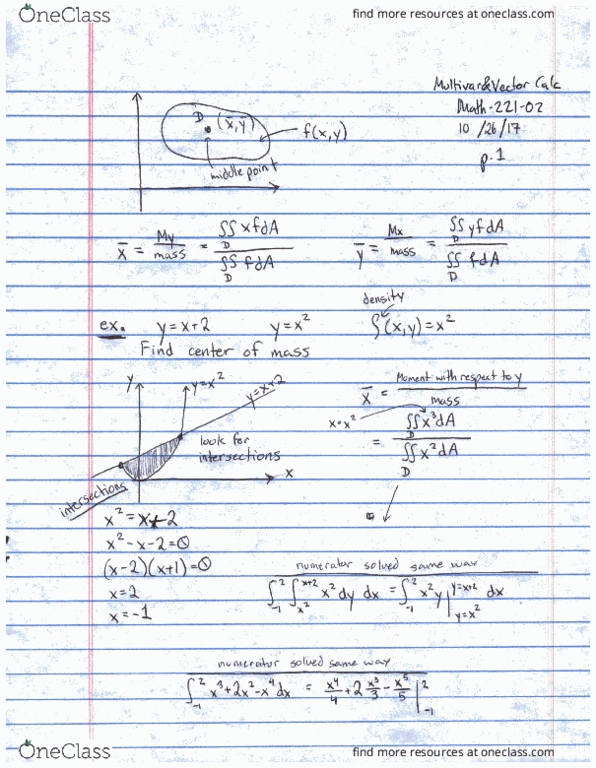 OneClass
find more resources at oneclass.com
Multivar&Vector Calc
Math-221-02
10/26/17
p.1
D (x̄,ȳ)
f(x,y)
middle point
x̄ = My/mass = ∬_D x f dA / ∬_D f dA
ȳ = Mx/mass = ∬_D y f dA / ∬_D f dA
density
ex. y=x+2 y=x² ρ(x,y)=x²
Find center of mass
y
y=x²
y=x+2
x̄ = Moment with respect to y / mass
x•x²
= ∬_D x³dA / ∬_D x²dA
look for
intersections
x
intersections
x²=x+2
x²-x-2=0
(x-2)(x+1)=0
x=2
x=-1
numerator solved same way
∫_-1^2 ∫_x²^x+2 x² dy dx = ∫_-1^2 x²y |_y=x²^y=x+2 dx
numerator solved same way
∫_-1^2 x³+2x²-x⁴dx = x⁴/4 + 2 x³/3 - x⁵/5 |_-1^2
OneClass
find more resources at oneclass.com